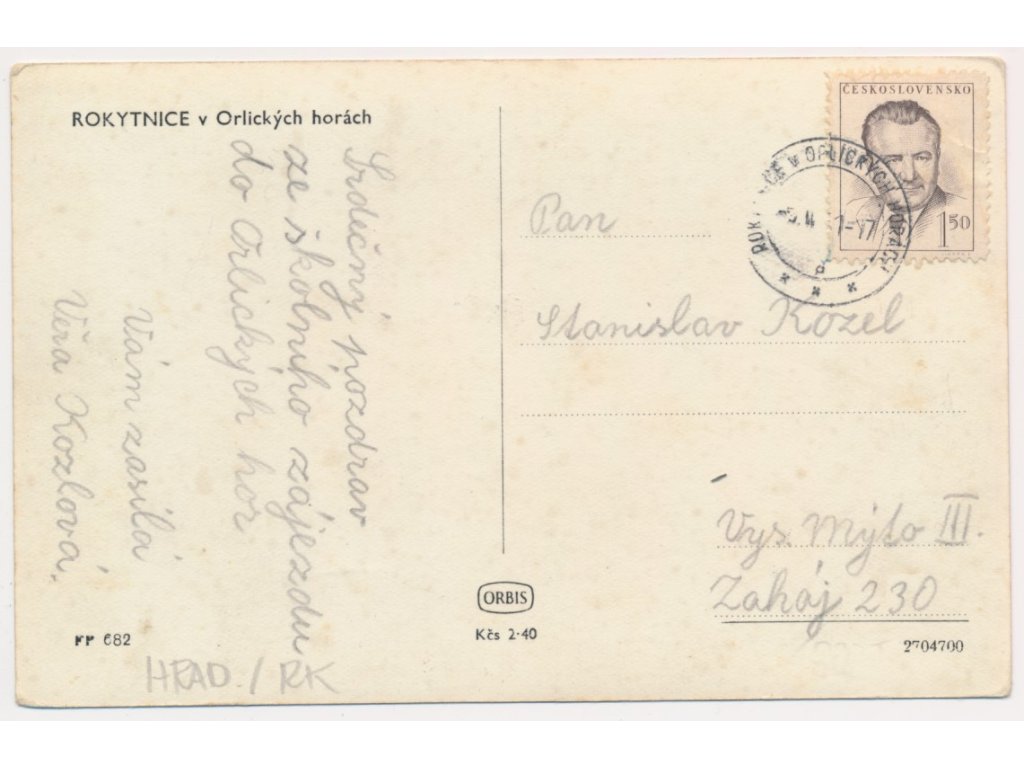 ROKYTNICE v Orlických horách
Srdečný pozdrav
ze školního zájezdu
do Orlických hor
Vám zasílá
Věra Kozlová.
FP 682
HRAD / RK
ORBIS
Kčs 2·40
ČESKOSLOVENSKO
1 50
V ORLICKÝCH HORÁCH
Pan
Stanislav Kozel
Vys. Mýto III.
Zaháj 230
2704700